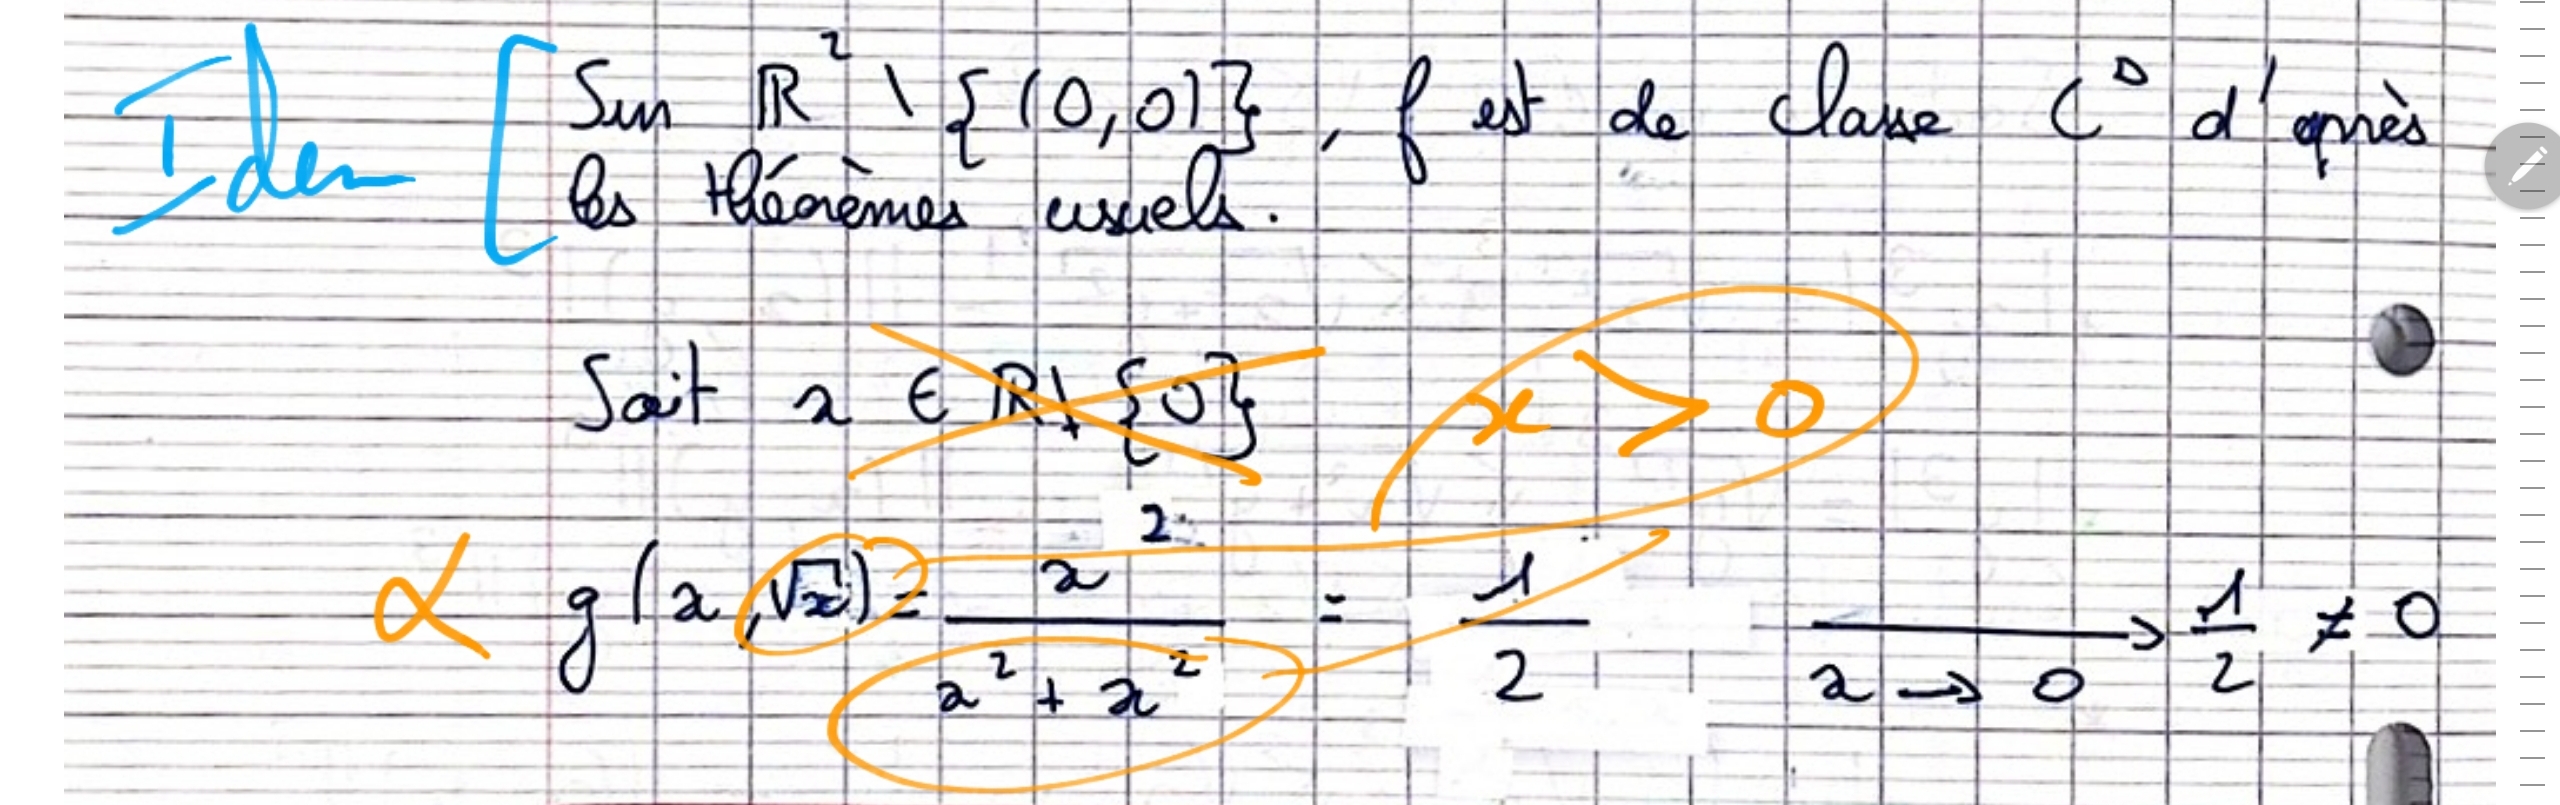 Idem [ Sur ℝ² \ {(0,0)}, f est de classe C⁰ d'après
les théorèmes usuels.
Soit x ∈ ℝ \ {0} x > 0
α g(x, √x) = x² / (x² + x²) = 1/2 ⟶ 1/2 ≠ 0
x → 0